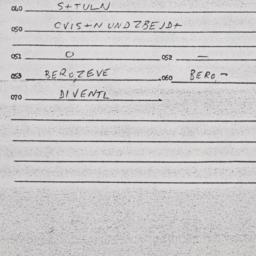 040 S+TULN
050 CVIS+NUNDZBEJD+
051 O 052 —
053 BEROZEVE 060 BERO-
070 DIVENTL